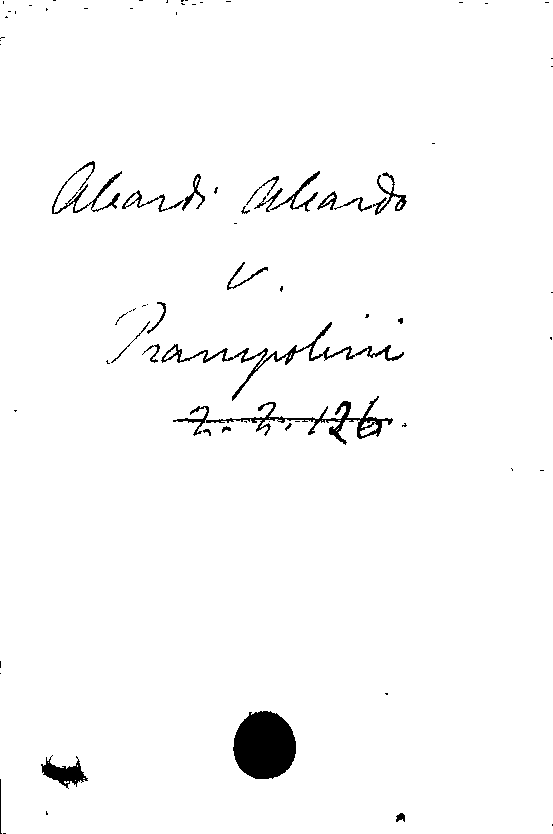 Aleardi Aleardo
v.
Prampolini
Z. Z. 126.